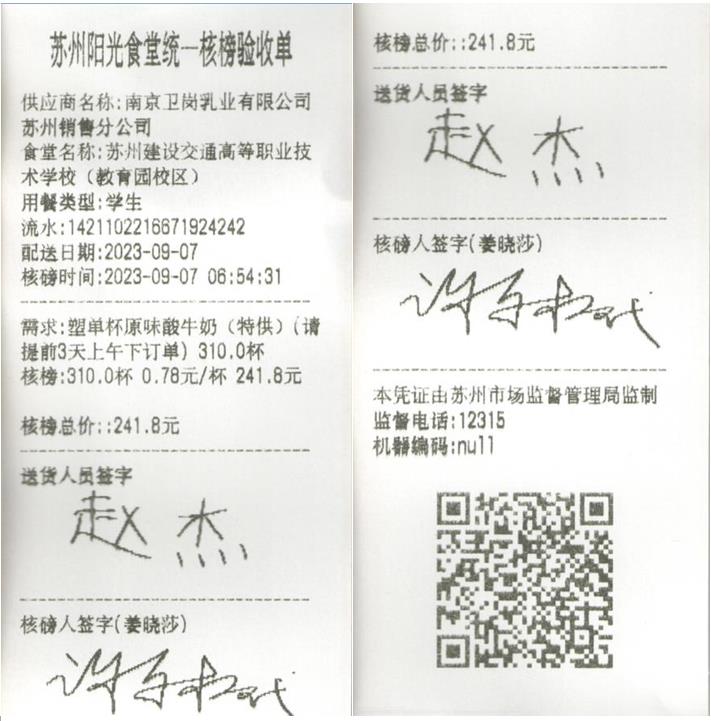 苏州阳光食堂统一核榜验收单
供应商名称:南京卫岗乳业有限公司
苏州销售分公司
食堂名称:苏州建设交通高等职业技
术学校（教育园校区）
用餐类型:学生
流水:1421102216671924242
配送日期:2023-09-07
核磅时间:2023-09-07 06:54:31
需求:塑单杯原味酸牛奶（特供）（请
提前3天上午下订单）310.0杯
核榜:310.0杯 0.78元/杯 241.8元
核榜总价::241.8元
送货人员签字
赵杰
核磅人签字(姜晓莎)
核榜总价::241.8元
送货人员签字
赵杰
核磅人签字(姜晓莎)
本凭证由苏州市场监督管理局监制
监督电话:12315
机器编码:null